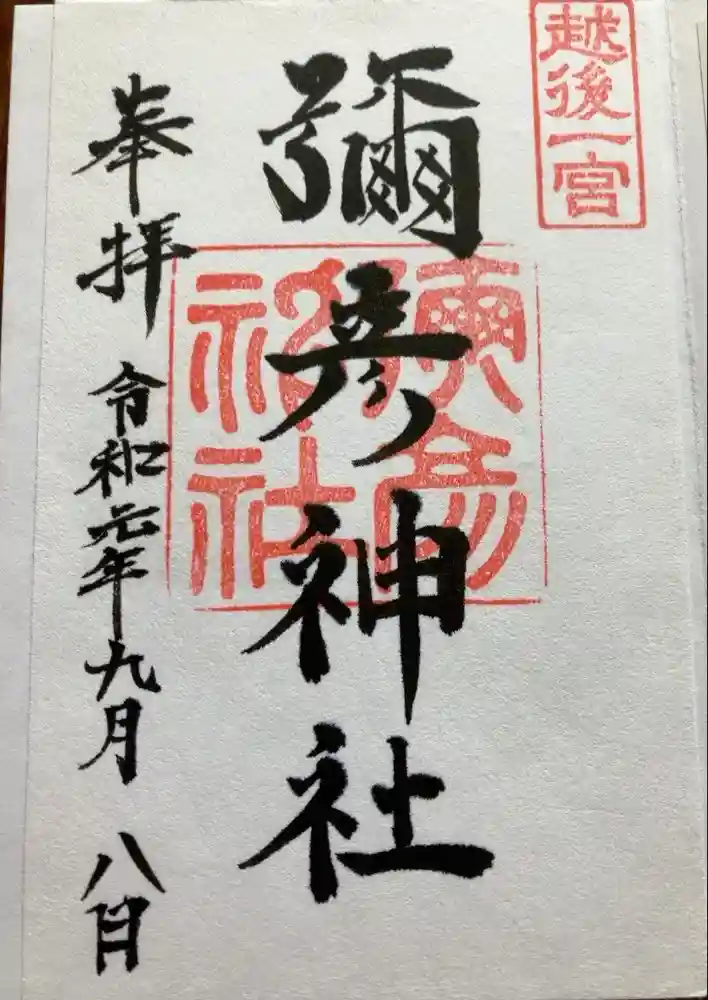 越後一宮
彌彦神社
彌彦神社
奉拝
令和元年九月八日